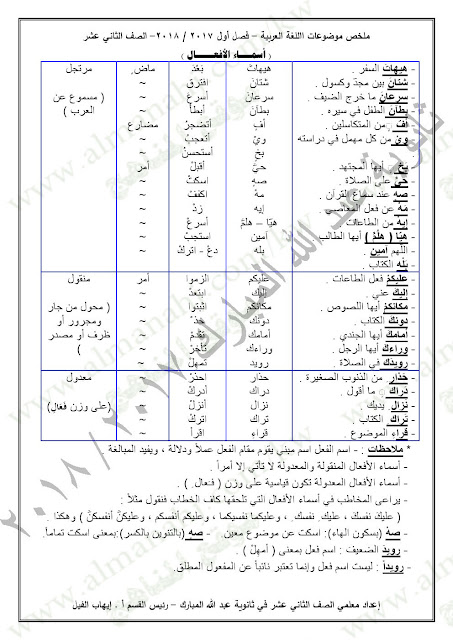 ملخص موضوعات االلغة العربية – فصل أول ٢٠١٧ / ٢٠١٨ – الصف الثاني عشر
( أسمـاء الأفعـال )
- هيهات السفر . هيهات بَعُدَ ماضٍ مرتجل
- شتان بين مجدّ وكسول . شتان افترق ~
- سرعان ما خرج الضيف . سرعان أسرع ~ ( مسموع عن
- بطآن الطفل في سيره . بطآن أبطأ ~ العرب )
- أف من المتكاسلين . أف أتضجرُ مضارع
- وي من كل مهمل في دراسته وي أتعجبُ ~
بخ أستحسنُ ~
- بخ أيها المجتهد . حيّ أقبلْ أمر
- حيّ على الصلاة . صه اسكتْ ~
- صه عند سماع القرآن . مه اكفف ~
- مه عن فعل المعاصي . إيه زدْ ~
- إيه من الطاعات . هيّا – هلمّ أسرعْ ~
- هيّا ( هلمّ ) أيها الطالب آمين استجبْ ~
- اللهم آمين . بله دعْ - اتركْ ~
- بله الكتاب .
- عليكم فعل الطاعات . عليكم الزموا أمر منقول
- إليك عني . إليك ابتعدْ ~
- مكانكم أيها اللصوص . مكانكم اثبتوا ~ ( محول من جار
- دونك الكتاب . دونك خذْ ~ ومجرور أو
- أمامك أيها الجندي . أمامك تقدمْ ~ ظرف أو مصدر
- وراءك أيها الرجل . وراءك تأخرْ ~ )
- رويدك في الصلاة . رويد تمهلْ ~
- حذار من الذنوب الصغيرة . حذار احذرْ ~ معدول
- دراك ما أقول . دراك أدركْ ~
- نزال بديك نزال أنزلْ ~ (على وزن فعالِ)
- تراك الكتاب . تراك اتركْ ~
- قراءِ الموضوع . قراءِ اقرأ ~
* ملاحظات : - اسم الفعل اسم مبني يقوم مقام الفعل عملاً ودلالة ، ويفيد المبالغة .
- أسماء الأفعال المنقولة والمعدولة لا تأتي إلا أمراً .
- أسماء الأفعال المعدولة تكون قياسية على وزن ( فعالِ ) .
- يراعى المخاطب في أسماء الأفعال التي تلحقها كاف الخطاب فنقول مثلاً :
( عليكَ نفسك ، عليكِ نفسك ، وعليكما نفسيكما ، وعليكم أنفسكم ، وعليكنَّ أنفسكنَّ ) وهكذا .
- صهْ (بسكون الهاء): اسكت عن موضوع معين. - صهٍ (بالتنوين بالكسر):بمعنى اسكت تماماً.
- رويد الضعيف : اسم فعل بمعنى ( أمهلْ ) .
- رويداً : ليست اسم فعل وإنما تعتبر نائباً عن المفعول المطلق.
إعداد معلمي الصف الثاني عشر في ثانوية عبد الله المبارك – رئيس القسم أ . إيهاب الفيل
ثانوية عبد الله المبارك ٢٠١٧ / ٢٠١٨